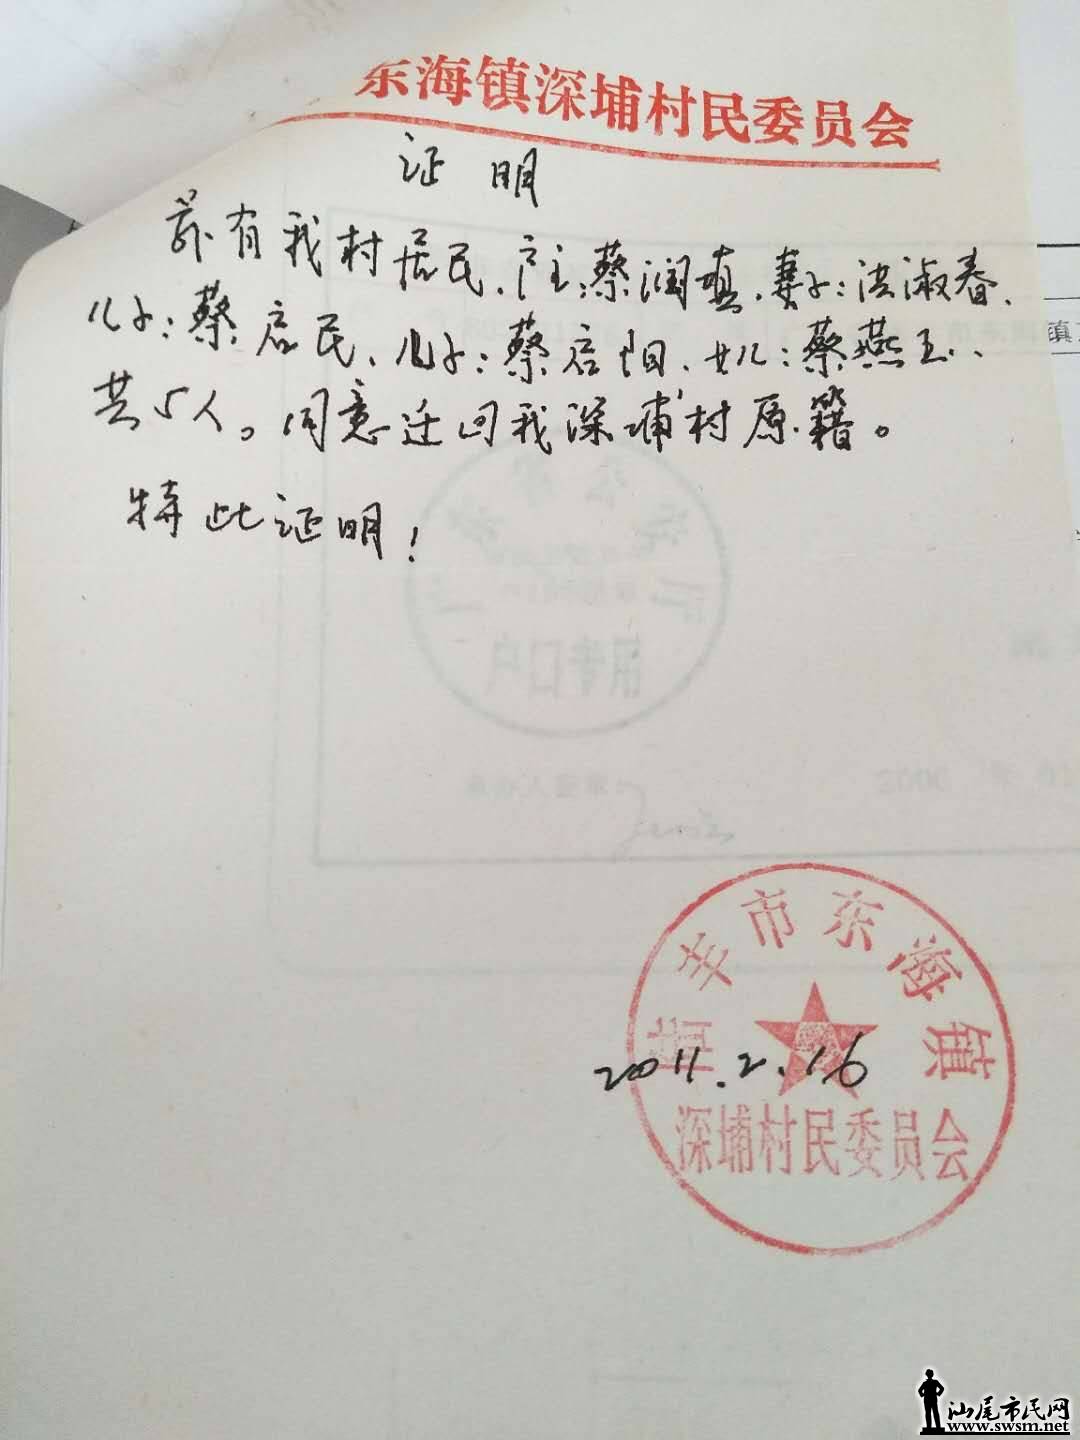 东海镇深埔村民委员会
证明
兹有我村居民、户主:蔡润填、妻子:洪淑春、
儿子:蔡启民、儿子:蔡启阳、女儿:蔡燕玉、
共5人。同意迁回我深埔村原籍。
特此证明!
镇
户口专用
陆丰市东海镇
2011.2.16
深埔村民委员会
汕尾市民网
www.swsm.net